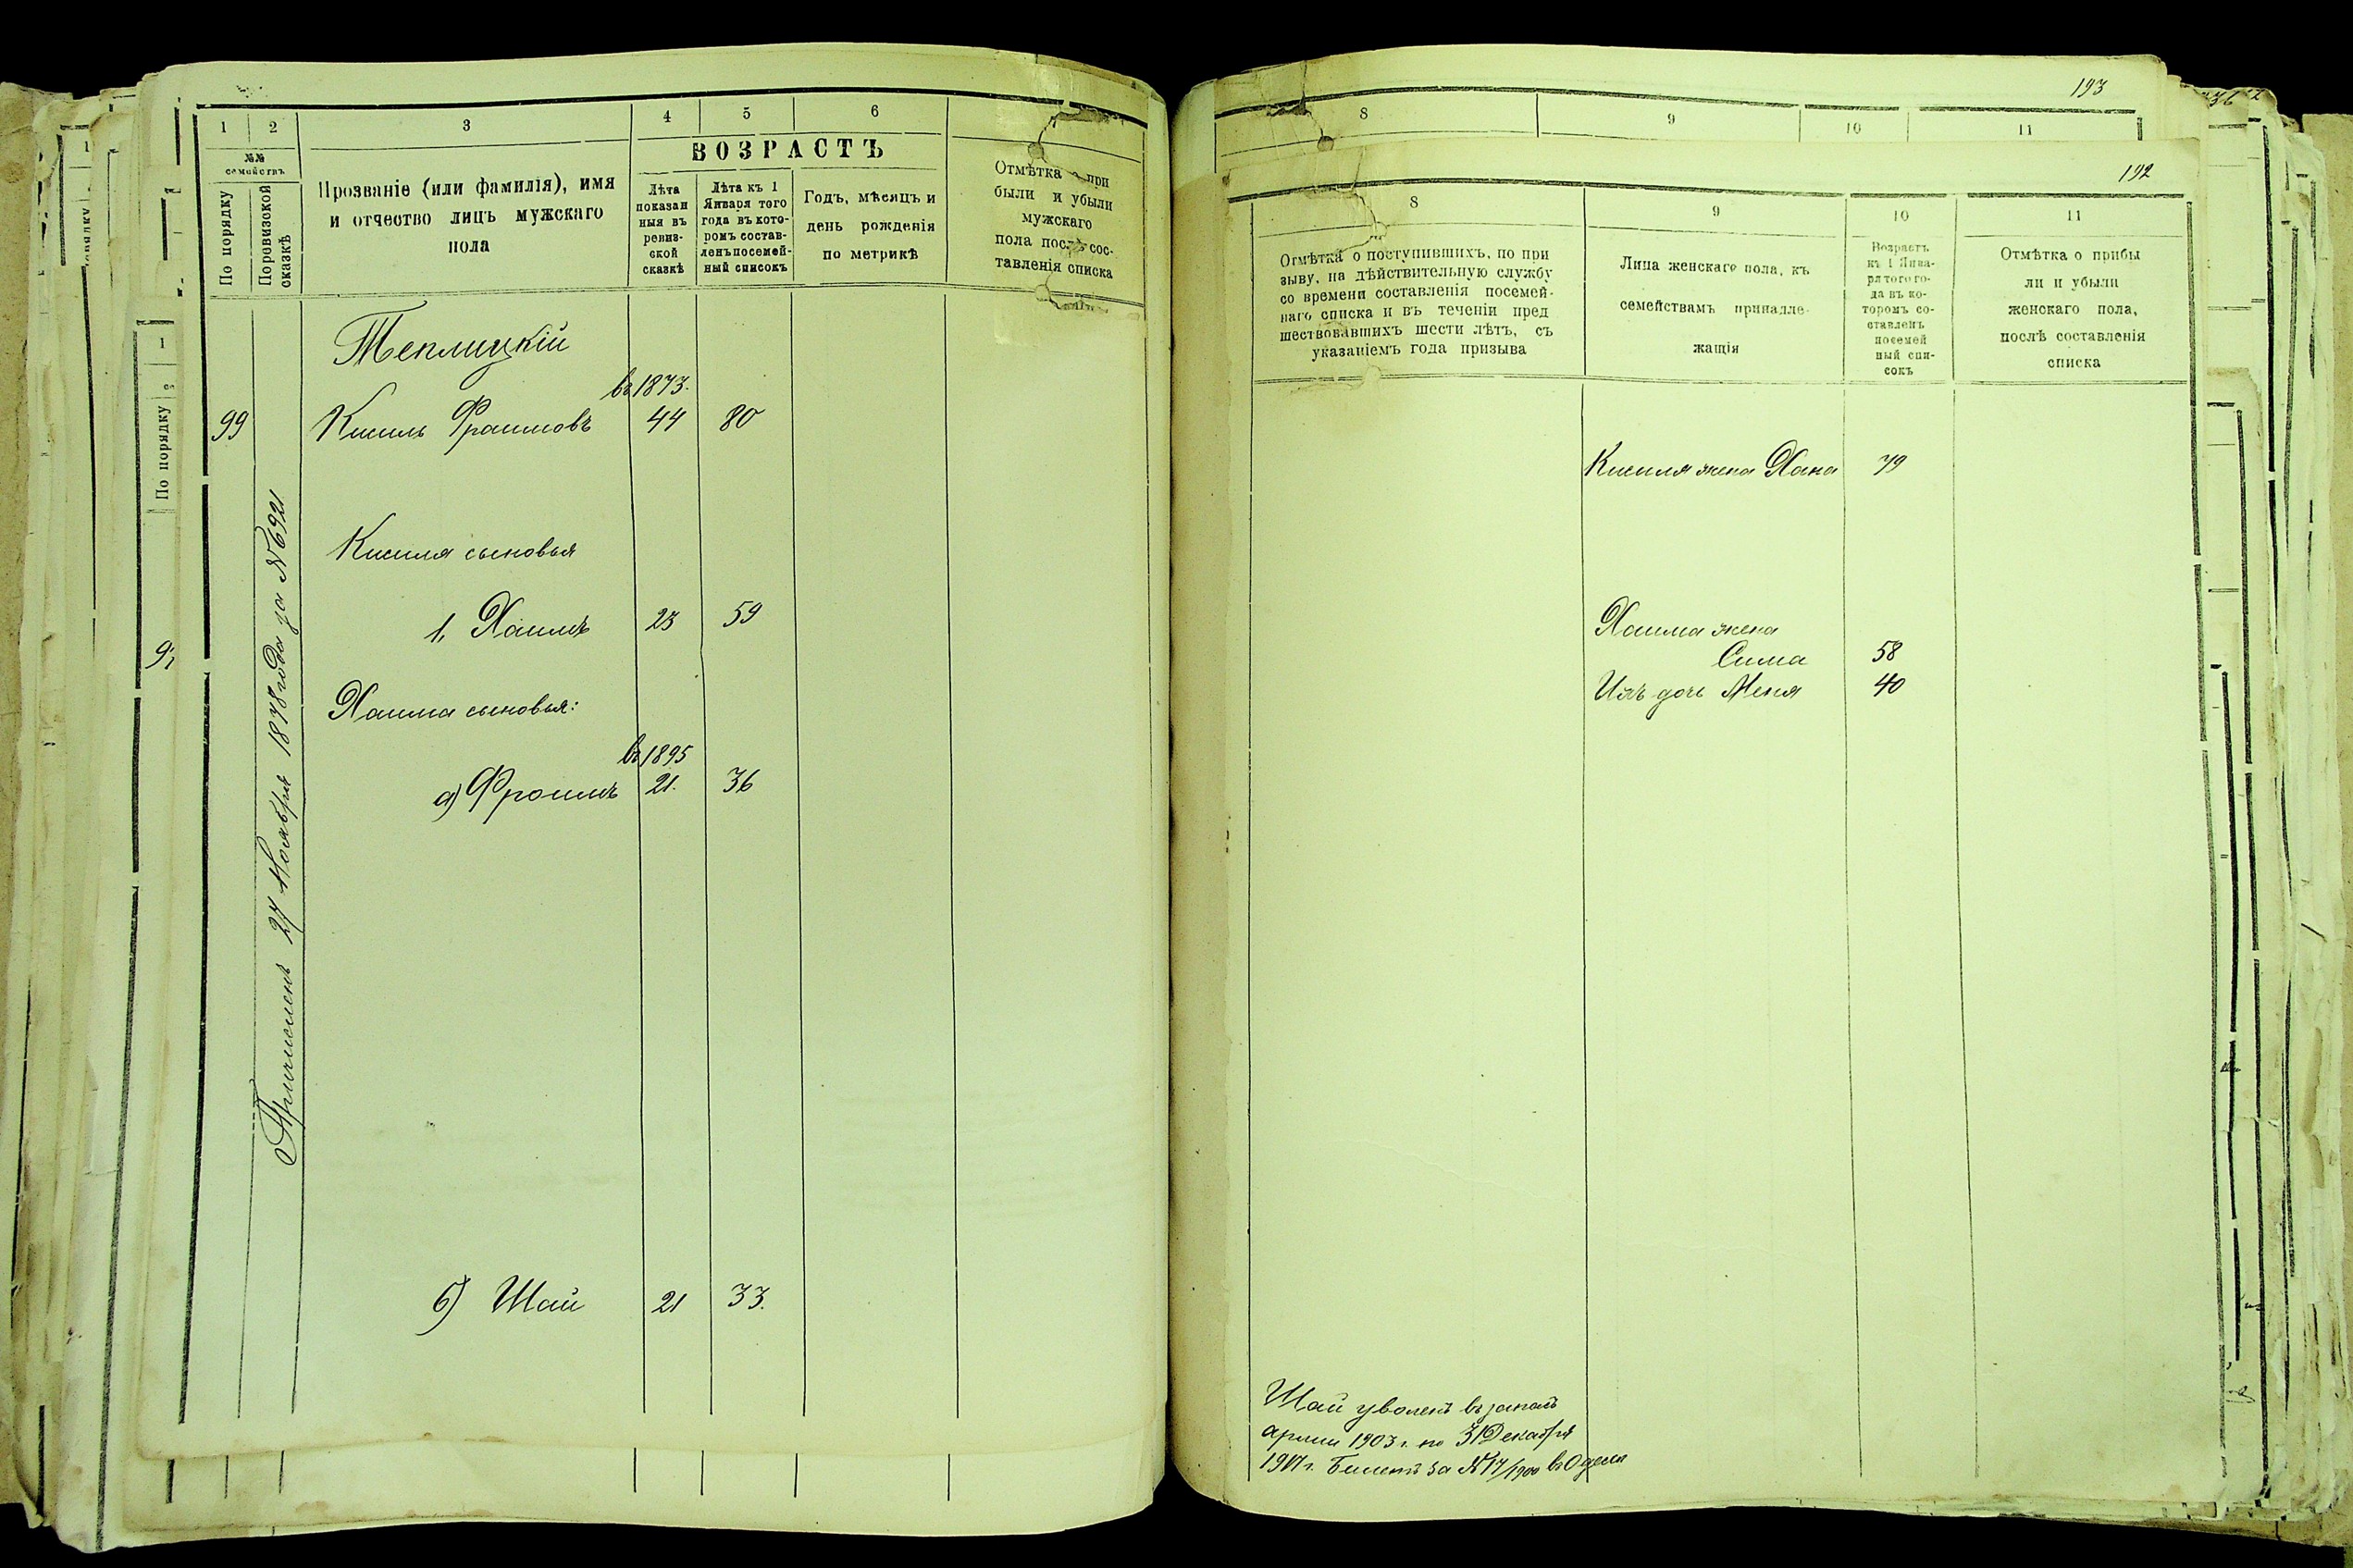 1 2 3 4 5 6
№№ семействъ
По порядку
По ревизской сказкѣ
Прозваніе (или фамилія), имя
и отчество лицъ мужскаго
пола
ВОЗРАСТЪ
Лѣта
показан
ныя въ
ревиз-
ской
сказкѣ
Лѣта къ 1
Января того
года въ кото-
ромъ состав-
ленъ посемей-
ный списокъ
Годъ, мѣсяцъ и
день рожденія
по метрикѣ
Отмѣтка о при
были и убыли
мужскаго
пола послѣ сос-
тавленія списка
Теплицкій
въ 1873.
99 Кисиль Фраимовъ 44 80
Кисиля сыновья
1, Хаимъ 23 59
Хаима сыновья:
въ 1895
а) Фроимъ 21. 36
б) Шай 21 33.
Причисленъ 27 Ноября 1878 года за №6921
1
По порядку
193
8 9 10 11
192
8 9 10 11
Отмѣтка о поступившихъ, по при
зыву, на дѣйствительную службу
со времени составленія посемей-
наго списка и въ теченіи пред
шествовавшихъ шести лѣтъ, съ
указаніемъ года призыва
Лица женскаго пола, къ
семействамъ принадле-
жащія
Возрастъ
къ 1 Янва-
ря того го-
да въ ко-
торомъ со-
ставленъ
посемей
ный спи-
сокъ
Отмѣтка о прибы
ли и убыли
женскаго пола,
послѣ составленія
списка
Кисиля жена Хана 79
Хаима жена
Сима 58
Ихъ дочь Меня 40
Шай уволенъ въ запасъ
арміи 1903 г. по 31 Декабря
1917 г. Билетъ за №17/1900 въ Одессѣ